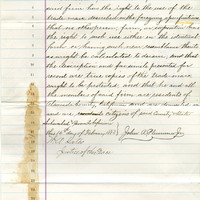 and firm has the right to the use of the
trade-mark described in the foregoing specification
that no other person, firm, or corporation has
the right to such use either in the identical
form or having such near resemblance thereto
as might be calculated to deceive, and that
the description and fac-simile presented for
record are true copies of the trade-mark
sought to be protected, and that he and all
the members of said firm are residents of
Alameda County
and are citizens of said County, State
Subscribed
this day of February 188 John A. Plummer Jr
Justice of the Peace